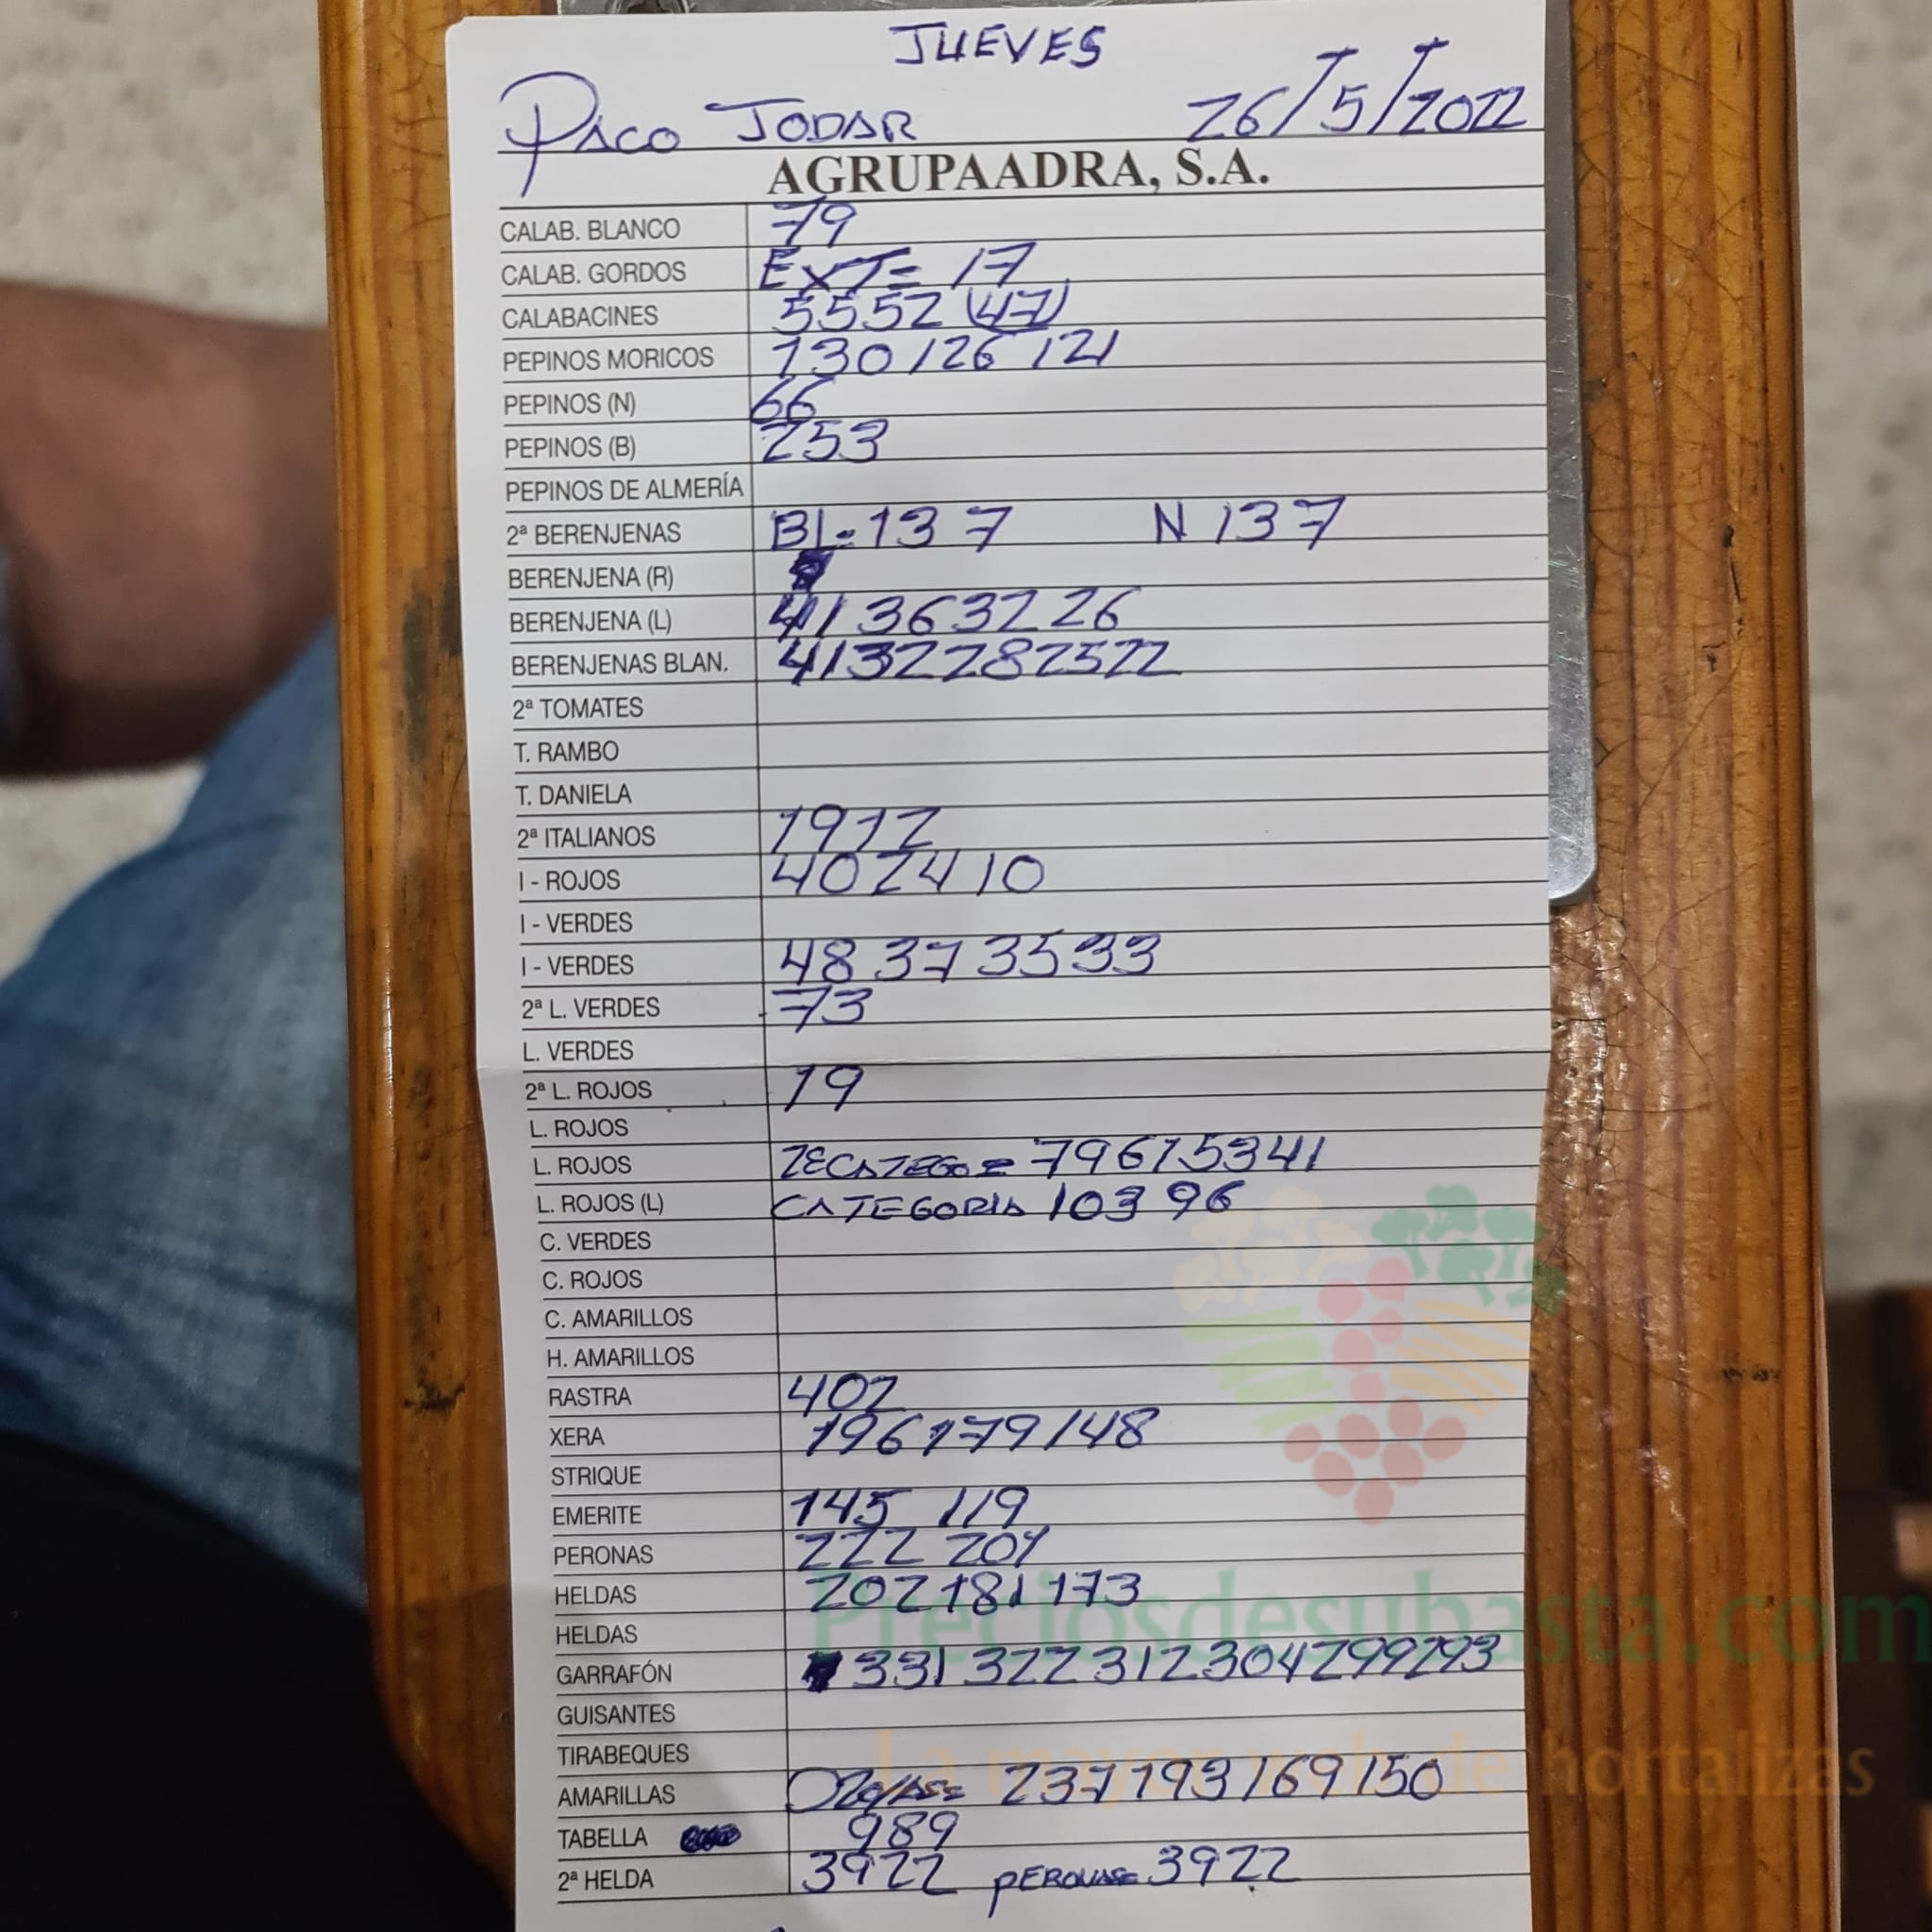 JUEVES
PACO JODAR 26/5/2022
AGRUPAADRA, S.A.
CALAB. BLANCO 79
CALAB. GORDOS EXT= 17
CALABACINES 5552 (47)
PEPINOS MORICOS 130 126 121
PEPINOS (N) 66
PEPINOS (B) 253
PEPINOS DE ALMERÍA
2ª BERENJENAS BL=13 7 N 13 7
BERENJENA (R)
BERENJENA (L) 41 36 32 26
BERENJENAS BLAN. 41 32 28 25 22
2ª TOMATES
T. RAMBO
T. DANIELA
2ª ITALIANOS 19 12
I - ROJOS 40 24 10
I - VERDES
I - VERDES 48 37 35 33
2ª L. VERDES 73
L. VERDES
2ª L. ROJOS 19
L. ROJOS
L. ROJOS 2ECATEGO= 79 61 53 41
L. ROJOS (L) CATEGORIA 103 96
C. VERDES
C. ROJOS
C. AMARILLOS
H. AMARILLOS
RASTRA 402
XERA 196 179 148
STRIQUE
EMERITE 145 119
PERONAS 222 204
HELDAS 202 181 173
Preciosdesubasta.com
HELDAS
GARRAFÓN 331 322 312 304 299 293
GUISANTES
TIRABEQUES
La mayor web de hortalizas
AMARILLAS 237 193 169 150
TABELLA 989
2ª HELDA 39 22 PERONAS= 39 22